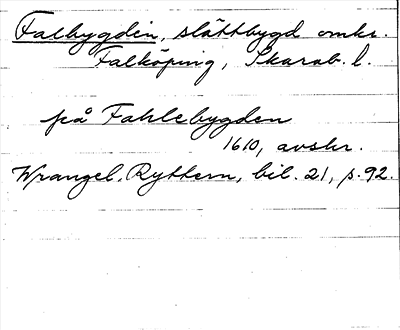 Falbygden, slättbygd omkr.
Falköping, Skarab. l.
på Fahlebygden
1610, avskr.
Wrangel, Ryttern, bil. 21, s. 92.